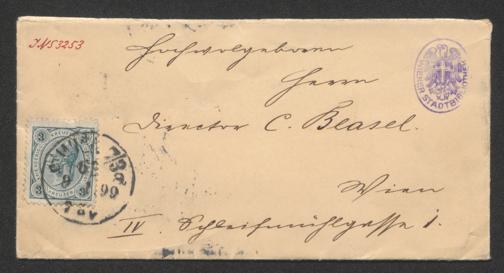 I.N. 53253
Hochwolgeboren
Herrn
Director C. Blasel.
Wien
IV. Schleifmühlgasse 1.
WIENER STADTBIBLIOTHEK
WIEN 7/3
99
3
3